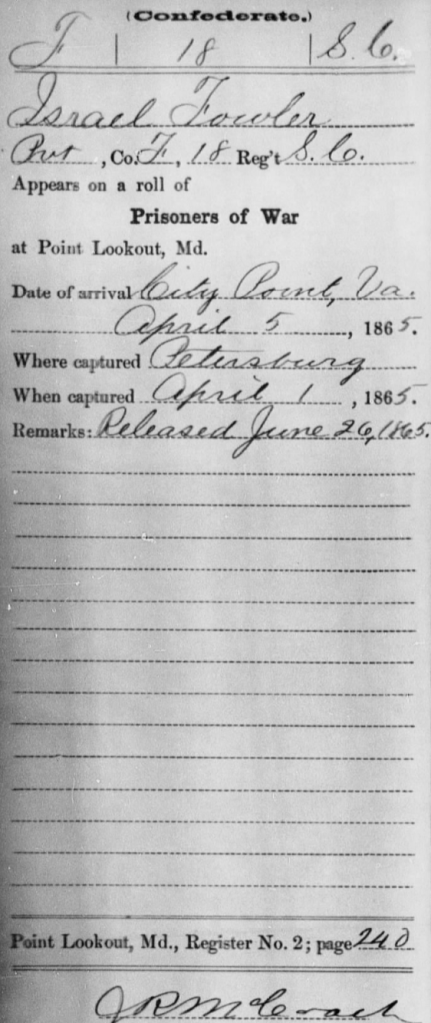 (Confederate.)
F | 18 | S.C.
Israel Fowler
Pvt, Co. F, 18 Reg't S.C.
Appears on a roll of
Prisoners of War
at Point Lookout, Md.
Date of arrival City Point, Va.
April 5, 1865.
Where captured Petersburg
When captured April 1, 1865.
Remarks: Released June 26, 1865.
Point Lookout, Md., Register No. 2; page 240